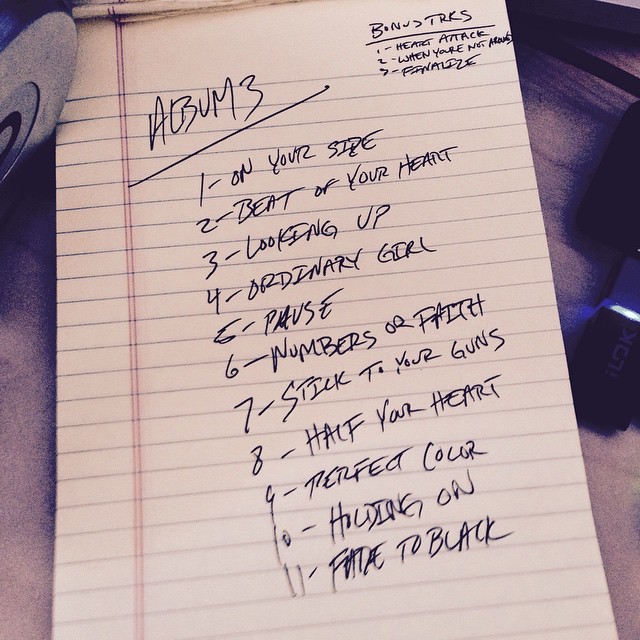 BONUS TRKS
1- HEART ATTACK
2- WHEN YOU'RE NOT AROUND
3- FINALIZE
ALBUM 3
1- ON YOUR SIDE
2- BEAT OF YOUR HEART
3- LOOKING UP
4- ORDINARY GIRL
5- PAUSE
6- NUMBERS OR FAITH
7- STICK TO YOUR GUNS
8- HALF YOUR HEART
9- PERFECT COLOR
10- HOLDING ON
11- FADE TO BLACK
iLOK